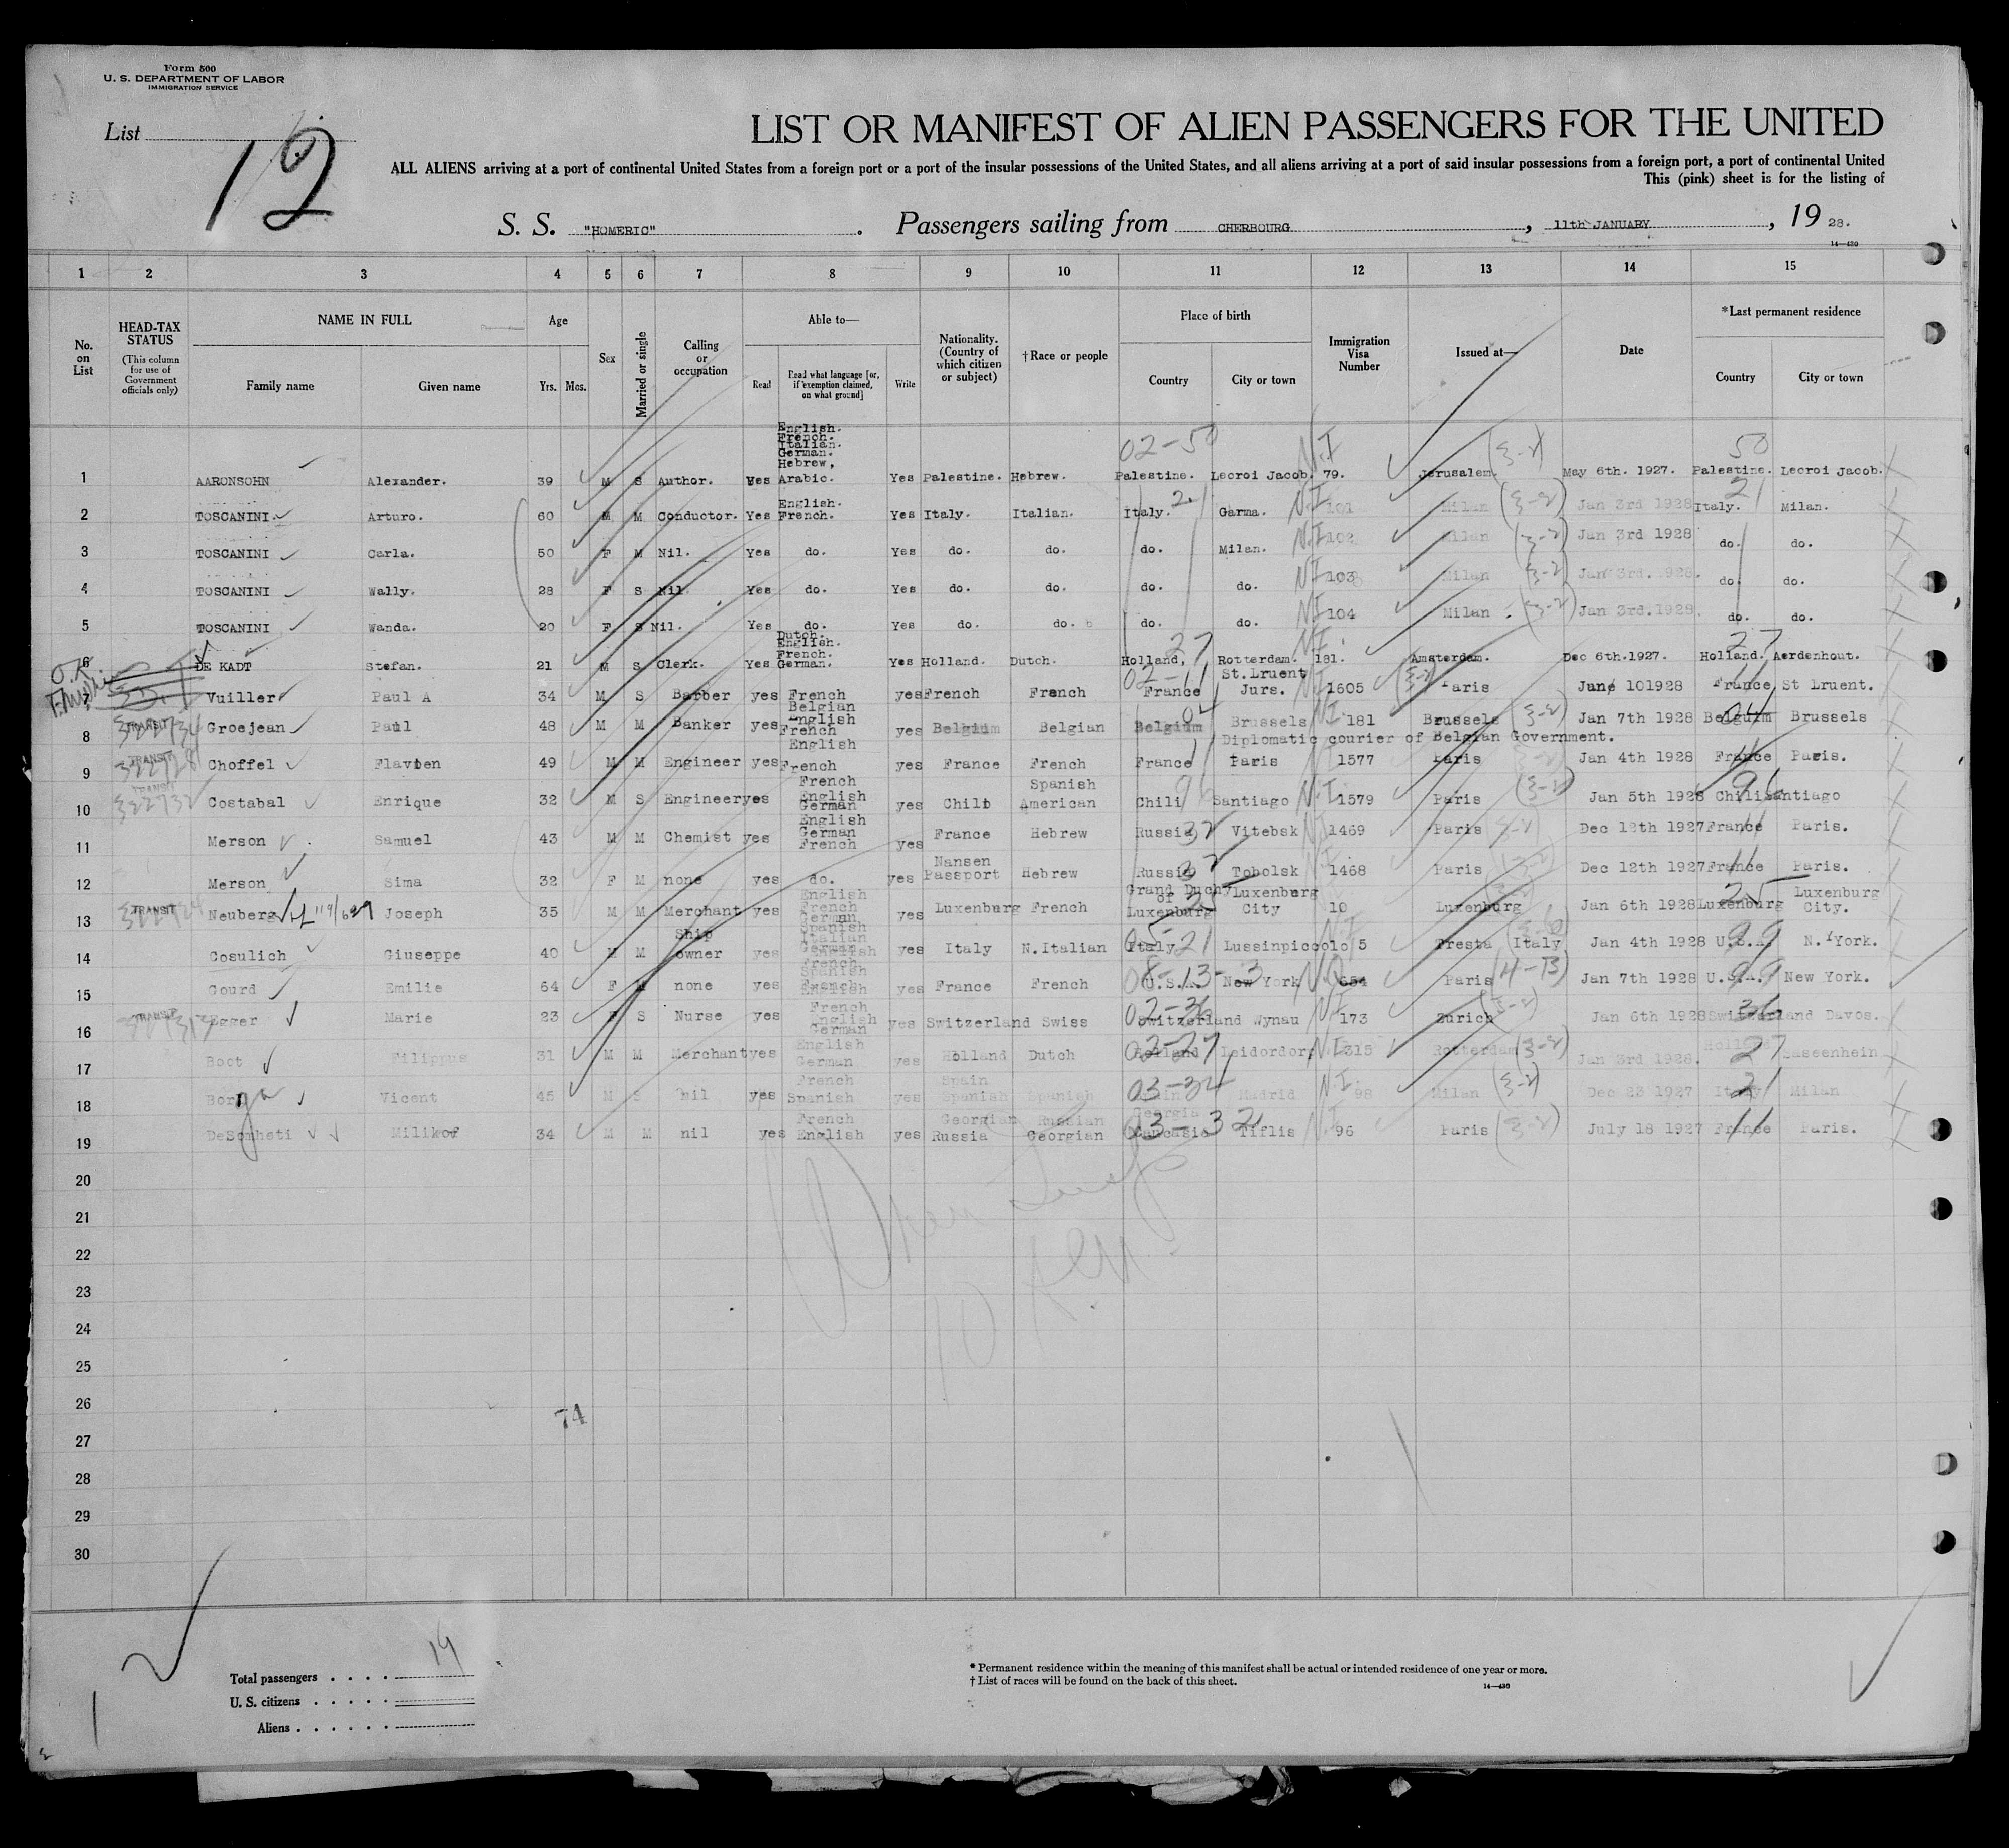 Form 500
U. S. DEPARTMENT OF LABOR
IMMIGRATION SERVICE
List
12
LIST OR MANIFEST OF ALIEN PASSENGERS FOR THE UNITED
ALL ALIENS arriving at a port of continental United States from a foreign port or a port of the insular possessions of the United States, and all aliens arriving at a port of said insular possessions from a foreign port, a port of continental United
This (pink) sheet is for the listing of
S. S. "HOMERIC". Passengers sailing from CHERBOURG, 11th JANUARY, 1928.
14—430
1 2 3 4 5 6 7 8 9 10 11 12 13 14 15
No. on List
HEAD-TAX STATUS
(This column for use of Government officials only)
NAME IN FULL
Family name Given name
Age
Yrs. Mos.
Sex
Married or single
Calling or occupation
Able to—
Read Read what language [or, if exemption claimed, on what ground] Write
Nationality. (Country of which citizen or subject)
†Race or people
Place of birth
Country City or town
Immigration Visa Number
Issued at—
Date
*Last permanent residence
Country City or town
02-50 N.I (3-2) 50
1 AARONSOHN Alexander. 39 M S Author. Yes English. French. Italian. German. Hebrew, Arabic. Yes Palestine. Hebrew. Palestine. Lecroi Jacob. 79. Jerusalem. May 6th. 1927. Palestine. Lecroi Jacob.
2 TOSCANINI. Arturo. 60 M M Conductor. Yes English. French. Yes Italy. Italian. Italy. 21 Garma. N.I 101 Milan (3-2) Jan 3rd 1928 Italy. 21 Milan.
3 TOSCANINI Carla. 50 F M Nil. Yes do. Yes do. do. do. Milan. N.I 102 Milan (3-2) Jan 3rd 1928 do. do.
4 TOSCANINI Wally. 28 F S Nil. Yes do. Yes do. do. do. do. N.I 103 Milan (3-2) Jan 3rd. 1928. do. do.
5 TOSCANINI Wanda. 20 F S Nil. Yes do. Yes do. do. do. do. N.I 104 Milan. (3-2) Jan 3rd.1928. do. do.
6 DE KADT Stefan. 21 M S Clerk. Yes Dutch. English. French. German. Yes Holland. Dutch. Holland, 27 Rotterdam. N.I. 181. Amsterdam. Dec 6th.1927. Holland. 27 Aerdenhout.
O.K.
7 Vuiller Paul A 34 M S Barber yes French yes French French France 02-11 St.Lruent Jurs. 1605 (3-2) Paris June 101928 France St Lruent.
8 TRANSIT Groejean Paul 48 M M Banker yes Belgian English French yes Belgium Belgian Belgium 04 Brussels N.I 181 Brussels (3-2) Jan 7th 1928 Belguim 04 Brussels
Diplomatic courier of Belgian Government.
9 TRANSIT Choffel Flavien 49 M M Engineer yes English French yes France French France 11 Paris 1577 Paris Jan 4th 1928 France 11 Paris.
10 TRANSIT Costabal Enrique 32 M S Engineer yes French English German yes Chili Spanish American Chili 96 Santiago N.I 1579 Paris Jan 5th 1928 Chili 96 Santiago
11 Merson Samuel 43 M M Chemist yes English German French yes France Hebrew Russia 32 Vitebsk 1469 Paris Dec 12th 1927 France 11 Paris.
12 Merson Sima 32 F M none yes do. yes Nansen Passport Hebrew Russia 32 Tobolsk 1468 Paris Dec 12th 1927 France 11 Paris.
13 TRANSIT Neuberg Joseph 35 M M Merchant yes English French German yes Luxenburg French Grand Duchy of Luxenburg 25 Luxenburg City 10 Luxenburg Jan 6th 1928 Luxenburg 25 Luxenburg City.
14 Cosulich Giuseppe 40 M M Ship owner yes Spanish Italian German English French yes Italy N.Italian Italy 21 Lussinpiccolo 5 Tresta Italy Jan 4th 1928 U.S.A. 99 N.York.
15 Gourd Emilie 64 F M none yes Spanish French English yes France French U.S.A. 08-13-3 New York 654 Paris (4-B) Jan 7th 1928 U.S.A. 99 New York.
16 TRANSIT Egger Marie 23 F S Nurse yes French English German yes Switzerland Swiss Switzerland 02-36 Wynau N.I 173 Zurich (3-2) Jan 6th 1928 Switzerland 36 Davos.
17 Boot Filippus 31 M M Merchant yes English German yes Holland Dutch Holland 02-27 Leidordorp N.I 315 Rotterdam (3-2) Jan 3rd 1928. Holland 27 Saseenhein
18 Borga Vicent 45 M S nil yes French Spanish yes Spain Spanish Spanish 03-34 Madrid N.I. 98 Milan (3-2) Dec 23 1927 Italy 21 Milan
19 DeSomheti Milikof 34 M M nil yes French English yes Georgian Russia Russian Georgian Georgia Caucasie 03-32 Tiflis N.I. 96 Paris (3-2) July 18 1927 France 11 Paris.
20
21
22
23
24
25
26
74
27
28
29
30
Total passengers . . . . 19
U. S. citizens . . . . .
Aliens . . . . . .
* Permanent residence within the meaning of this manifest shall be actual or intended residence of one year or more.
† List of races will be found on the back of this sheet.
14—430